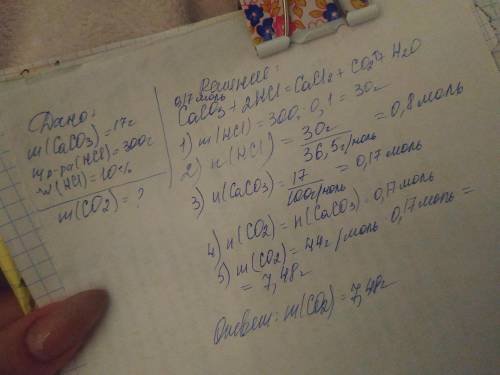 Дано:
m(CaCO3)=17г
m р-ра(HCl)=300г
w(HCl)=10%
m(CO2)=?
Решение:
0,17моль
CaCO3+2HCl=CaCl2+CO2↑+H2O
1) m(HCl)=300г·0,1=30г
2) n(HCl)=30г/36,5г/моль=0,8моль
3) n(CaCO3)=17/100г/моль=0,17моль
4) n(CO2)=n(CaCO3)=0,17моль
5) m(CO2)=44г/моль·0,17моль=
=7,48г
Ответ: m(CO2)=7,48г